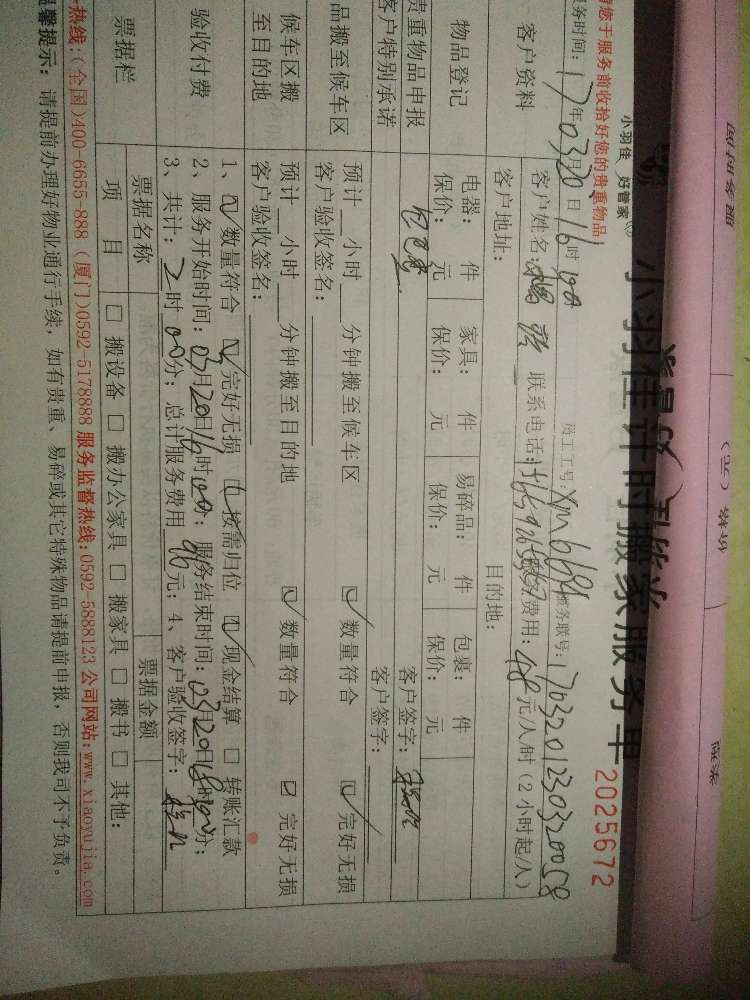 小羽佳计时搬家服务单
2025672
小羽佳 好管家
您于服务前收拾好您的贵重物品
服务时间：17年03月20日16时
员工工号：xm6691
服务联号：1703201230320058
客户资料
客户姓名：
联系电话：
费用：48元/人时（2小时起/人）
客户地址：
目的地：
物品登记
电器： 件 家具： 件 易碎品： 件 包裹： 件
保价： 元 保价： 元 保价： 元 保价： 元
贵重物品申报
客户签字：
客户特别承诺
客户签字：
品搬至候车区
预计 小时 分钟搬至候车区 ☑数量符合 ☑完好无损
客户验收签名：
候车区搬
至目的地
预计 小时 分钟搬至目的地 ☑数量符合 ☑完好无损
客户验收签名：
验收付费
1、☑数量符合 ☑完好无损 ☑按需归位 ☑现金结算 □转账汇款
2、服务开始时间：03月20日16时00分；服务结束时间：03月20日18时00分；
3、共计：2时00分；总计服务费用96元；4、客户验收签字：
票据栏
票据名称
票据金额
项 目 □搬设备 □搬办公家具 □搬家具 □搬书 □其他：
热线：（全国）400-6655-888（厦门）0592-5178888 服务监督热线：0592-5888123 公司网站：www.xiaoyujia.com
温馨提示：请提前办理好物业通行手续，如有贵重、易碎或其它特殊物品请提前申报，否则我司不予负责。